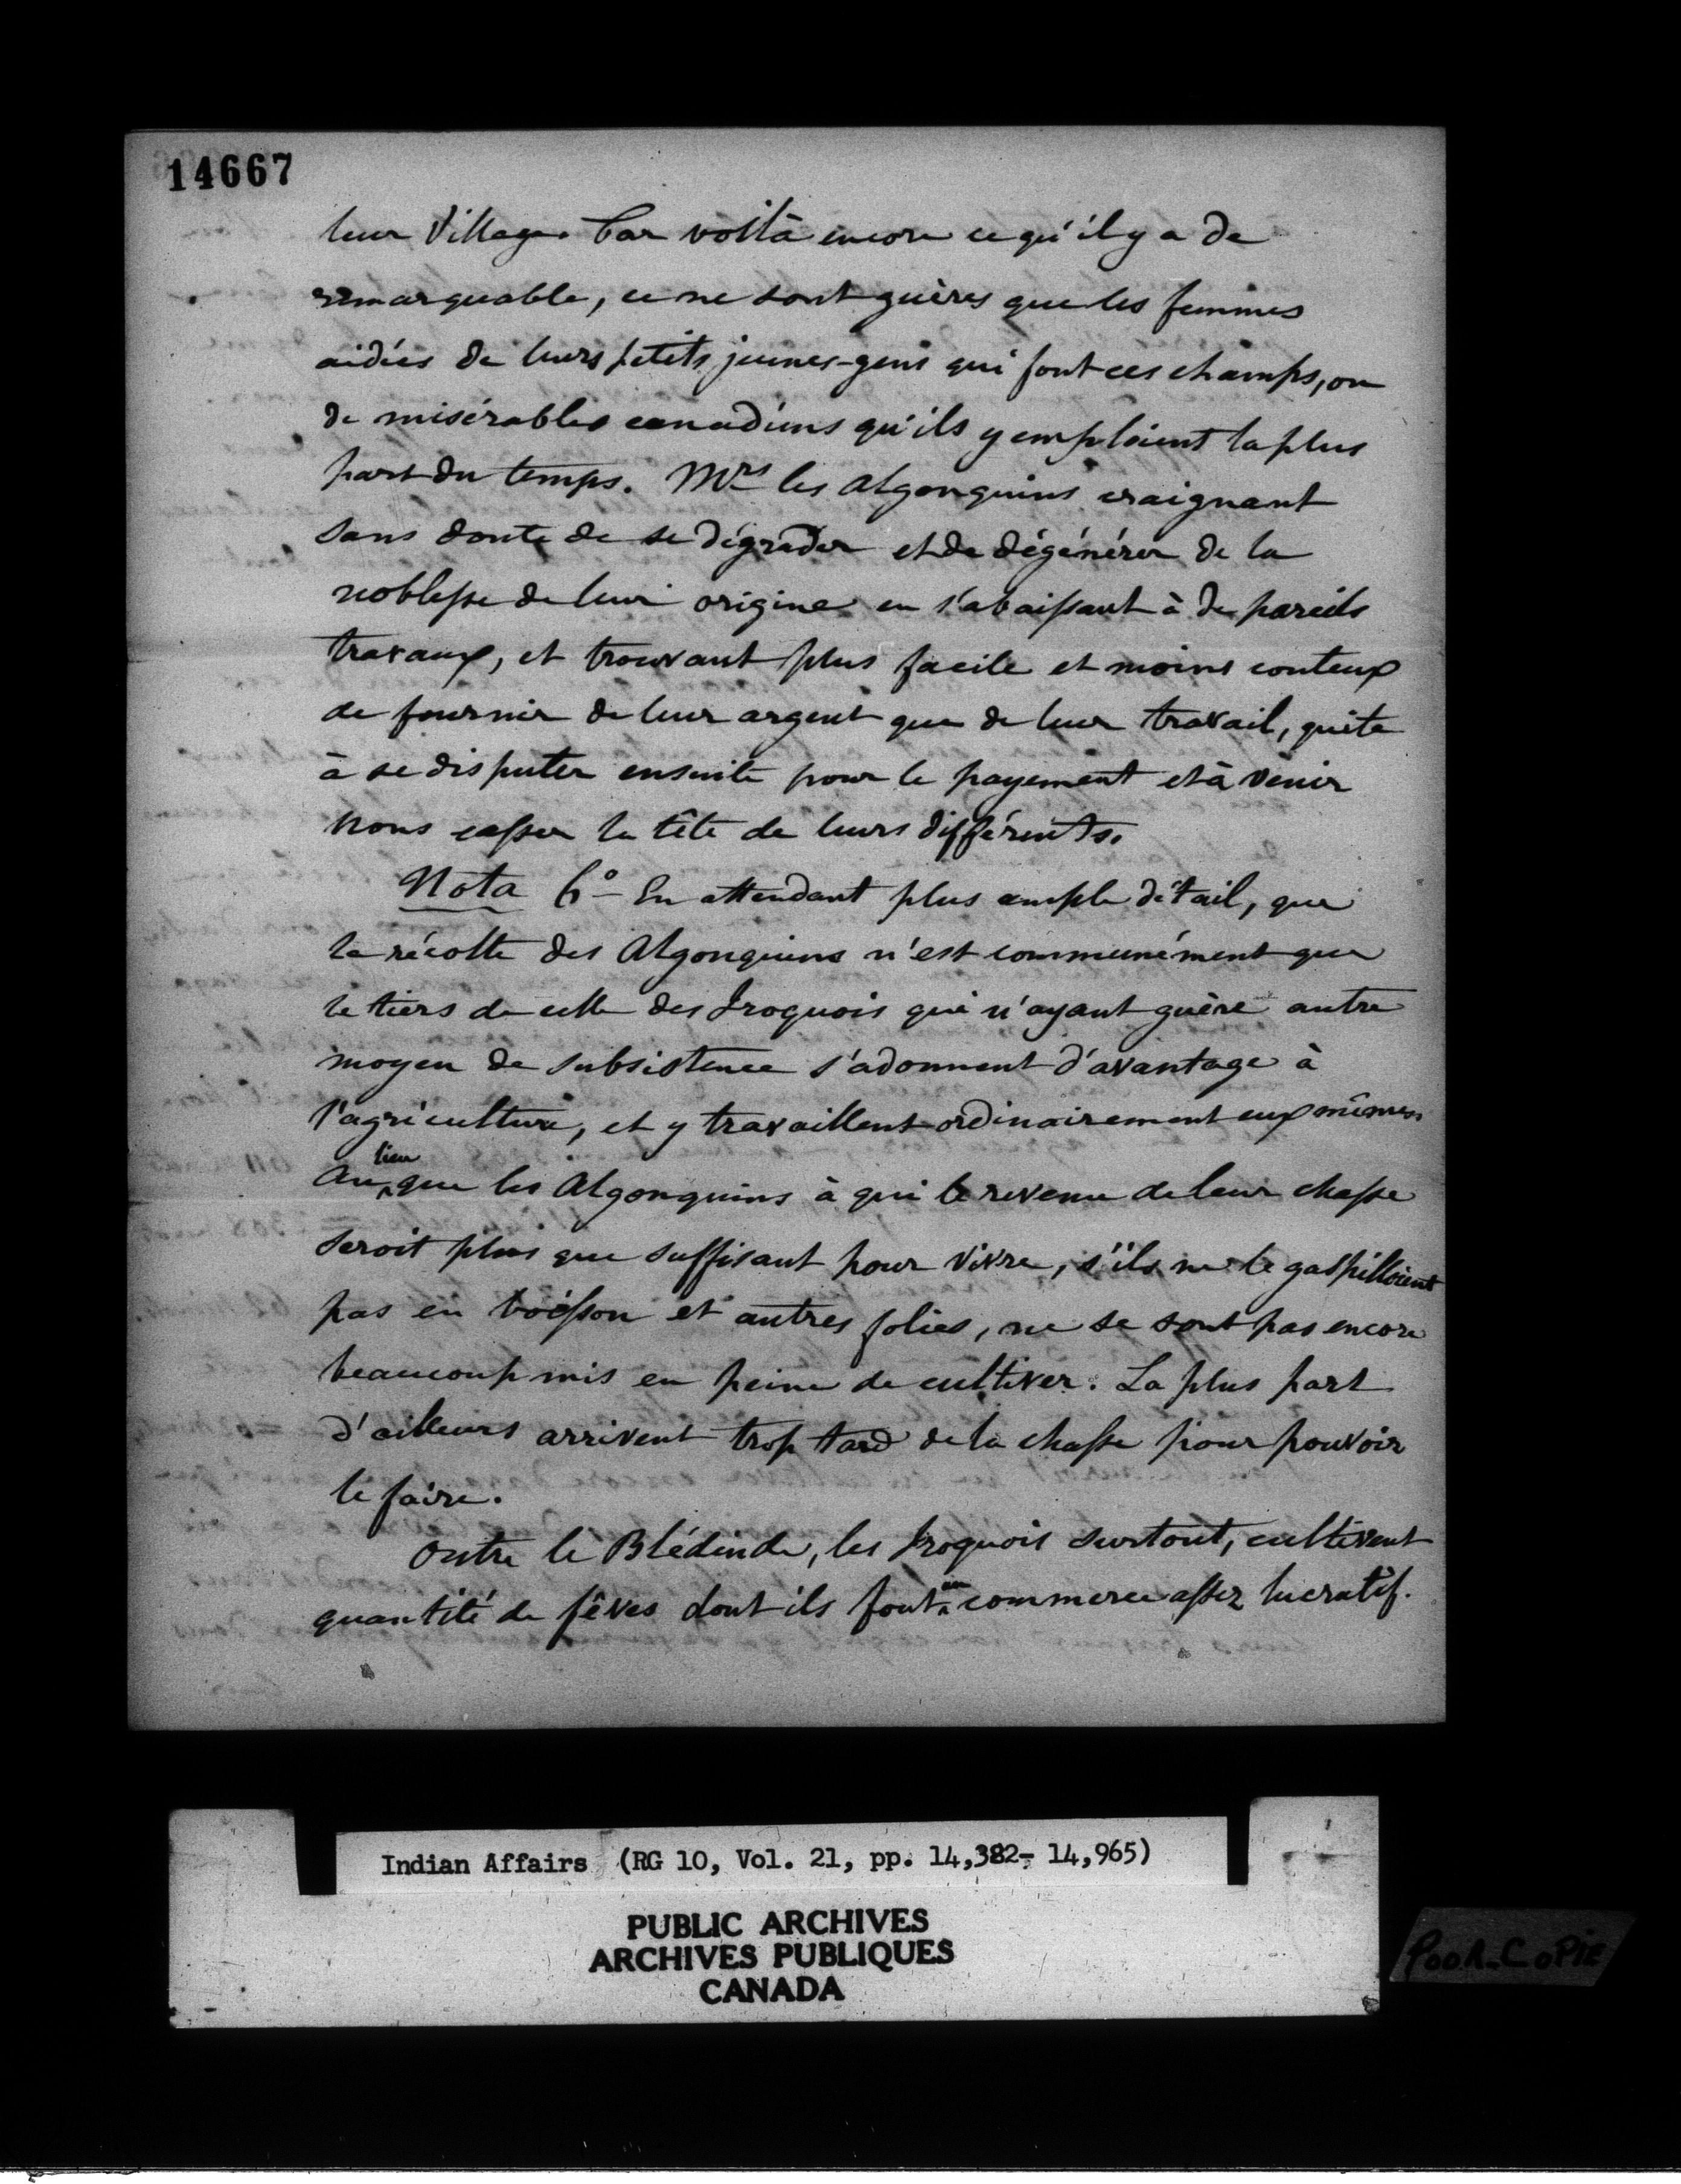 14667
leur Village. Car voilà encore ce qu'il y a de
remarquable, ce ne sont guères que les femmes
aidées de leurs petits jeunes-gens qui font ces champs, ou
de misérables canadiens qu'ils y emploient la plus
part du temps. Mrs les Algonquins craignant
sans doute de se dégrader et de dégénérer de la
noblesse de leur origine en s'abaissant à de pareils
travaux, et trouvant plus facile et moins couteux
de fournir de leur argent que de leur travail, quite
à se disputer ensuite pour le payement et à venir
nous casser la tête de leurs différents.
Nota 6° - En attendant plus ample détail, que
la récolte des Algonquins n'est communément que
le tiers de celle des Iroquois qui n'ayant guère autre
moyen de subsistence s'adonnent d'avantage à
l'agriculture, et y travaillent ordinairement eux mêmes
Au lieu que les Algonquins à qui le revenu de leur chasse
seroit plus que suffisant pour vivre, s'ils ne le gaspilloient
pas en boisson et autres folies, ne se sont pas encore
beaucoup mis en peine de cultiver. La plus part
d'ailleurs arrivent trop tard de la chasse pour pouvoir
le faire.
Outre le Blédinde, les Iroquois surtout, cultivent
quantité de fêves dont ils font un commerce assez lucratif.
Indian Affairs (RG 10, Vol. 21, pp. 14,382- 14,965)
PUBLIC ARCHIVES
ARCHIVES PUBLIQUES
CANADA
POOR COPIE